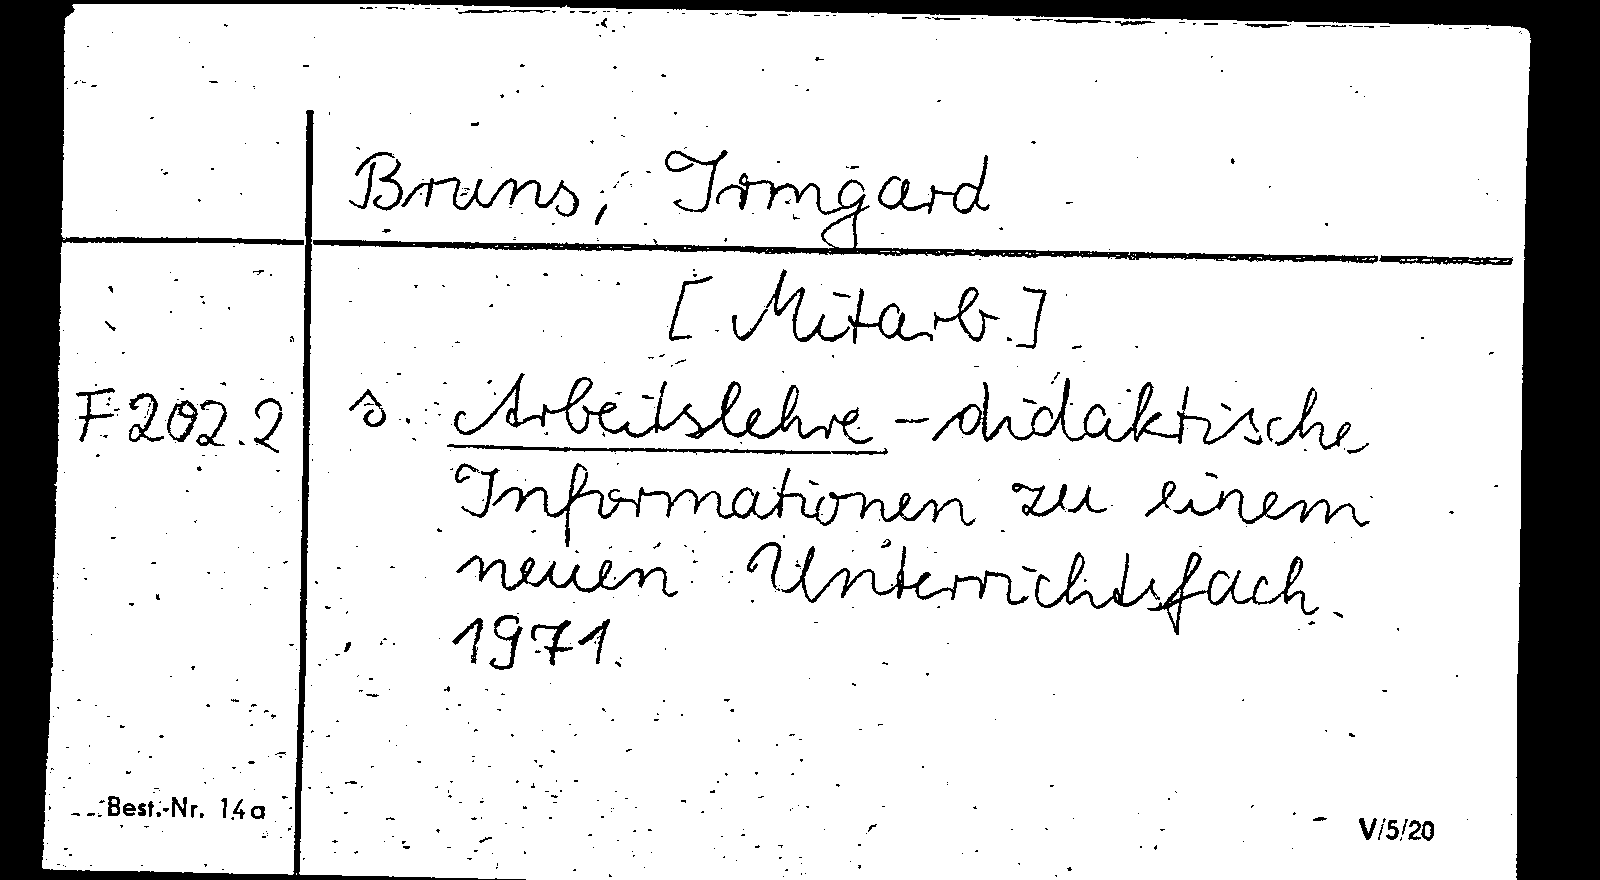 Bruns, Irmgard
[Mitarb.]
F 202.2 s. Arbeitslehre - didaktische
Informationen zu einem
neuen Unterrichtsfach.
1971.
Best.-Nr. 14a
V/5/20